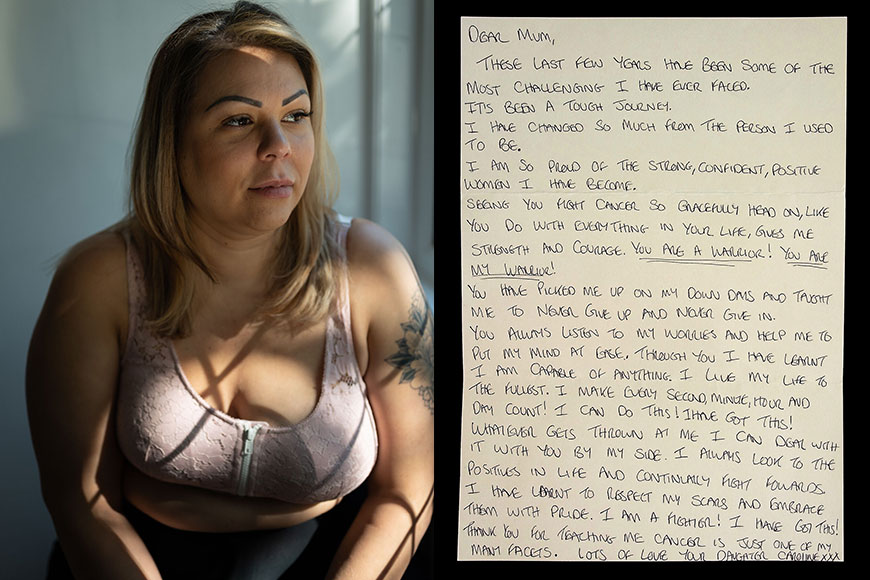 DEAR MUM,
THESE LAST FEW YEARS HAVE BEEN SOME OF THE
MOST CHALLENGING I HAVE EVER FACED.
IT'S BEEN A TOUGH JOURNEY.
I HAVE CHANGED SO MUCH FROM THE PERSON I USED
TO BE.
I AM SO PROUD OF THE STRONG, CONFIDENT, POSITIVE
WOMEN I HAVE BECOME.
SEEING YOU FIGHT CANCER SO GRACEFULLY HEAD ON, LIKE
YOU DO WITH EVERYTHING IN YOUR LIFE, GIVES ME
STRENGTH AND COURAGE. YOU ARE A WARRIOR! YOU ARE
MY WARRIOR!
YOU HAVE PICKED ME UP ON MY DOWN DAYS AND TAUGHT
ME TO NEVER GIVE UP AND NEVER GIVE IN.
YOU ALWAYS LISTEN TO MY WORRIES AND HELP ME TO
PUT MY MIND AT EASE. THROUGH YOU I HAVE LEARNT
I AM CAPABLE OF ANYTHING. I LIVE MY LIFE TO
THE FULLEST. I MAKE EVERY SECOND, MINUTE, HOUR AND
DAY COUNT! I CAN DO THIS! I HAVE GOT THIS!
WHATEVER GETS THROWN AT ME I CAN DEAL WITH
IT WITH YOU BY MY SIDE. I ALWAYS LOOK TO THE
POSITIVES IN LIFE AND CONTINUALLY FIGHT FOWARDS.
I HAVE LEARNT TO RESPECT MY SCARS AND EMBRACE
THEM WITH PRIDE. I AM A FIGHTER! I HAVE GOT THIS!
THANK YOU FOR TEACHING ME CANCER IS JUST ONE OF MY
MANY FACETS. LOTS OF LOVE YOUR DAUGHTER CAROLINE XXX